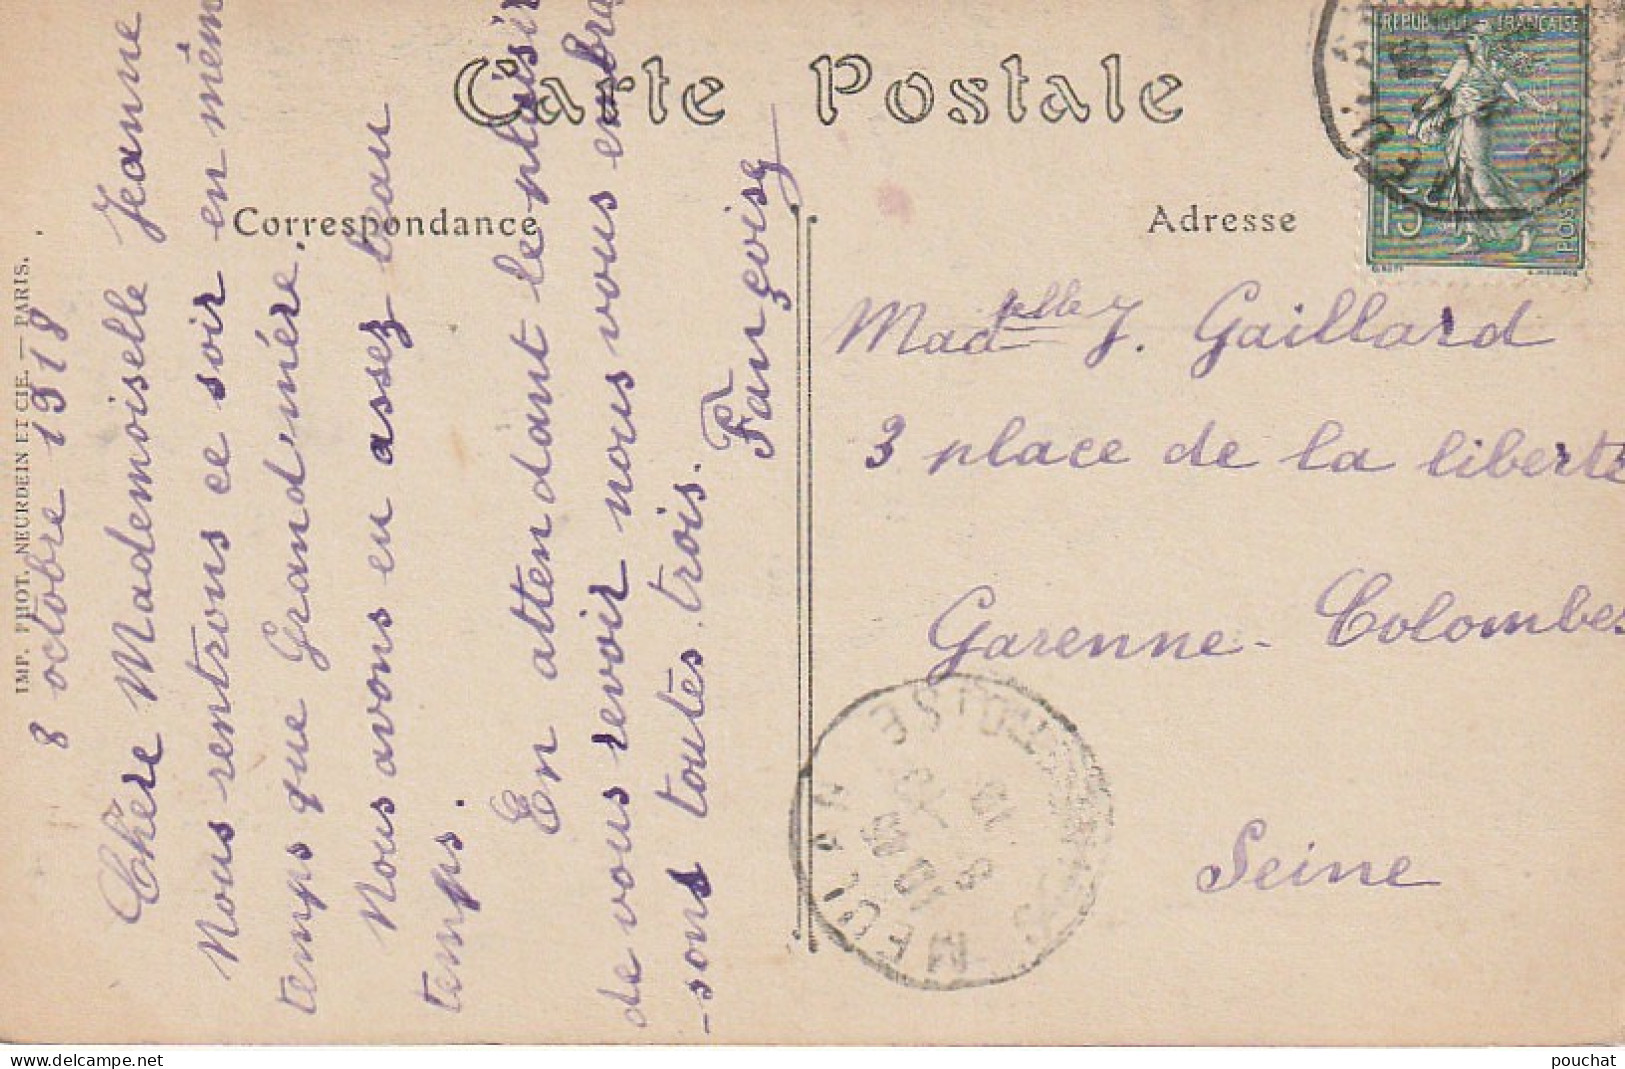 Carte Postale
Correspondance
Adresse
IMP. PHOT. NEURDEIN ET CIE. — PARIS.
8 octobre 1918
Chère Mademoiselle Jeanne
Nous rentrons ce soir en mêm
temps que Grand'mère.
Nous avons eu assez beau
temps.
En attendant le plaisir
de vous revoir nous vous embra
-sons toutes trois.
Françoise
Madelle J. Gaillard
3 place de la liberté
Garenne-Colombes
Seine
REPUBLIQUE FRANÇAISE
15c
POSTES
MEULAN
S. ET OISE
pouchat